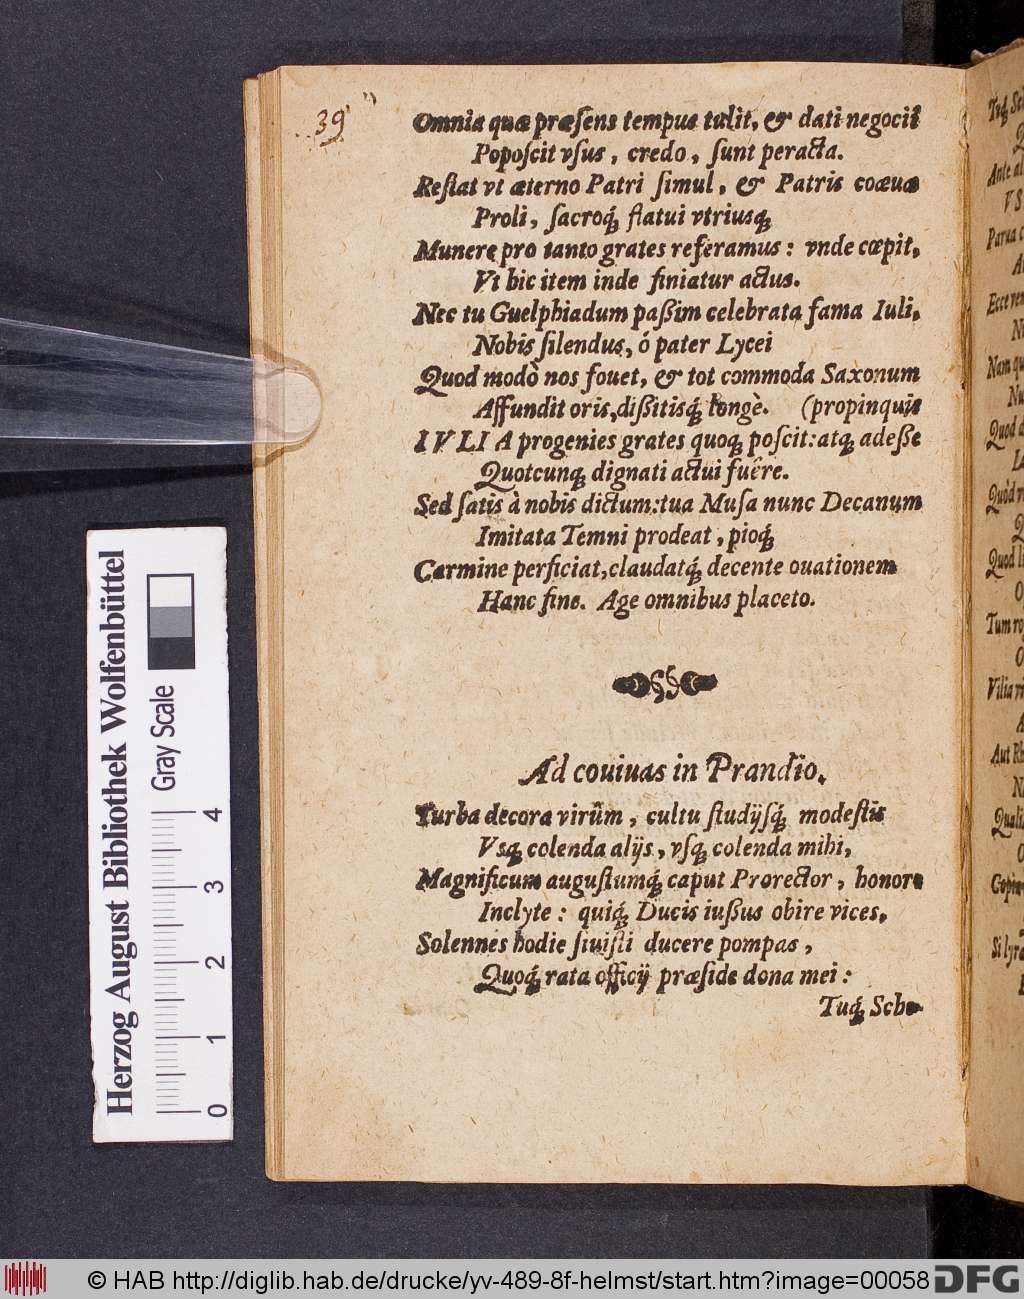 39
Omnia quæ præsens tempus tulit, & dati negocii
Poposcit vsus, credo, sunt peracta.
Restat vt æterno Patri simul, & Patris coæuæ
Proli, sacroq́; flatui vtriusq;
Munere pro tanto grates referamus: vnde cœpit,
Vt hic item inde finiatur actus.
Nec tu Guelphiadum paßim celebrata fama Iuli,
Nobis silendus, ó pater Lycei
Quod modò nos fouet, & tot commoda Saxonum
Affundit oris, dißitisq́; longè. (propinquis
IVLIA progenies grates quoq; poscit: atq; adeße
Quotcunq; dignati actui fuêre.
Sed satis à nobis dictum: tua Musa nunc Decanum
Imitata Temni prodeat, pioq́;
Carmine perficiat, claudatq́; decente ouationem
Hanc fine. Age omnibus placeto.
Ad couiuas in Prandio.
Turba decora virûm, cultu studijsq́; modestis
Vsq; colenda alijs, vsq; colenda mihi,
Magnificum augustumq́; caput Prorector, honore
Inclyte: quiq́; Ducis iußus obire vices,
Solennes hodie siuisti ducere pompas,
Quoq́; rata officij præside dona mei:
Tuq́; Scho-
Herzog August Bibliothek Wolfenbüttel
Gray Scale
0 1 2 3 4
© HAB http://diglib.hab.de/drucke/yv-489-8f-helmst/start.htm?image=00058
DFG